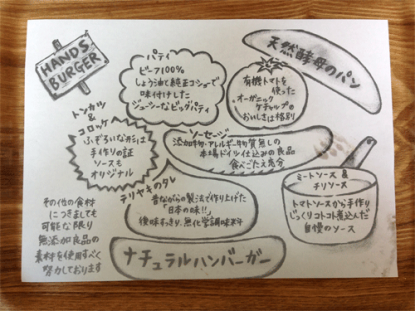 HANDS
BURGER
パティ
ビーフ100%
しょう油で純正コショーで
味付けした
ジューシーなビッグパティ
天然酵母のパン
有機トマトを
使った
オーガニック
ケチャップの
おいしさは格別
トンカツ
&
コロッケ
ふぞろいな形は
手作りの証
ソースも
オリジナル
ソーセージ
添加物・アレルギー物質無しの
本場ドイツ仕込みの良品
食べごたえ充分
テリヤキのタレ
昔ながらの製法で作り上げた
"日本の味!!"
後味すっきり、無化学調味料
ミートソース &
チリソース
トマトソースから手作り
じっくりコトコト煮込んだ
自慢のソース
その他の食材
につきましても
可能な限り
無添加良品の
素材を使用すべく
努力しております
ナチュラルハンバーガー